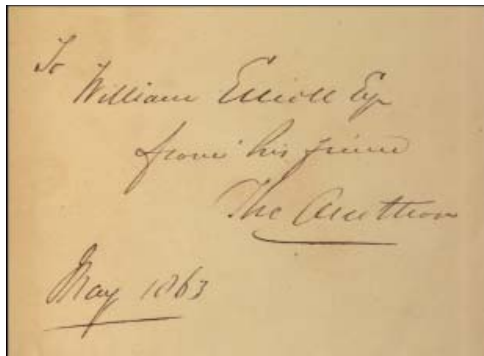 To
William Elliott Esq
from his friend
The Author
May 1863